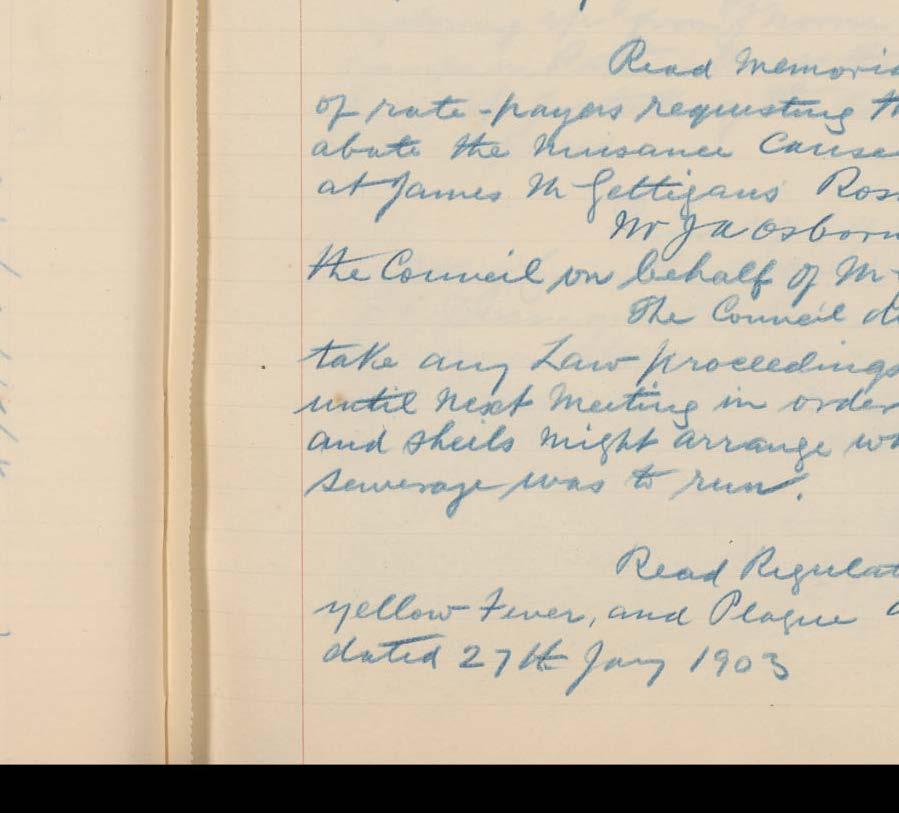 Read Memoria
of rate-payers requesting th
abate the nuisance Cause
at James McGettigans Ros
Mr J A Osborn
the Council on behalf of M
The Council d
take any Law proceedings
until Next Meeting in order
and Sheils Might arrange wh
sewerage was to run.
Read Regulat
yellow Fever, and Plague
dated 27th Jany 1903